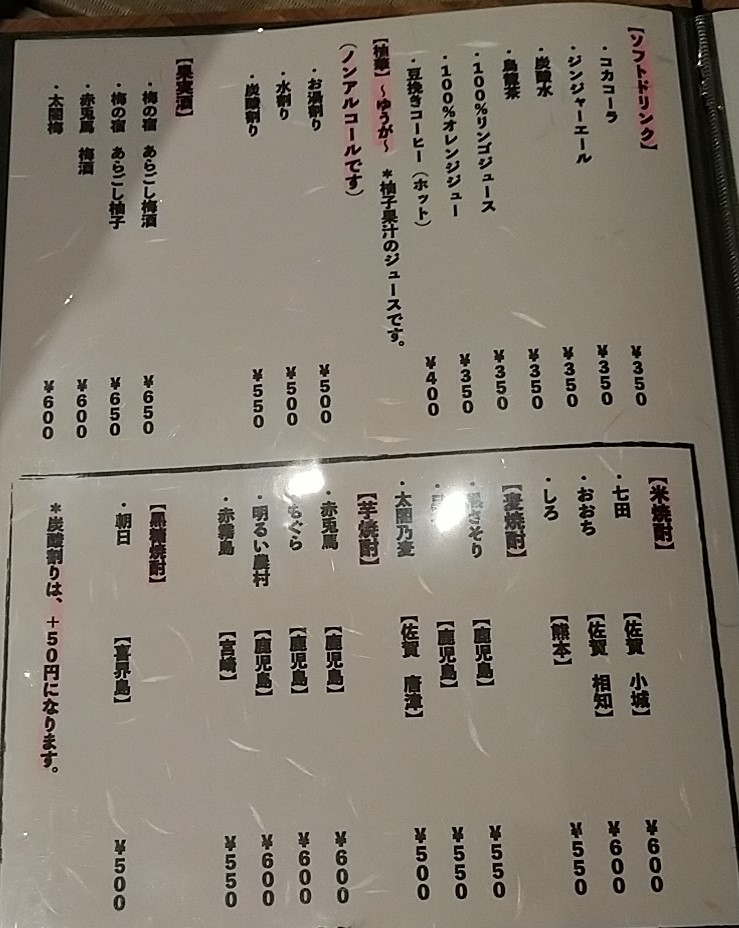 【ソフトドリンク】
・コカコーラ ¥350
・ジンジャーエール ¥350
・炭酸水 ¥350
・烏龍茶 ¥350
・100%リンゴジュース ¥350
・100%オレンジジュー ¥350
・豆挽きコーヒー（ホット） ¥400
【柚華】～ゆうか～ ＊柚子果汁のジュースです。
（ノンアルコールです）
・お湯割り ¥500
・水割り ¥500
・炭酸割り ¥550
【果実酒】
・梅の宿 あらごし梅酒 ¥650
・梅の宿 あらごし柚子 ¥650
・赤兎馬 梅酒 ¥600
・太閤梅 ¥600
【米焼酎】
・七田 【佐賀 小城】 ¥600
・おおち 【佐賀 相知】 ¥600
・しろ 【熊本】 ¥550
【麦焼酎】
さそり 【鹿児島】 ¥550
【鹿児島】 ¥550
・太閤乃麦 【佐賀 唐津】 ¥500
【芋焼酎】
・赤兎馬 【鹿児島】 ¥600
もぐら 【鹿児島】 ¥600
・明るい農村 【鹿児島】 ¥600
・赤霧島 【宮崎】 ¥550
【黒糖焼酎】
・朝日 【喜界島】 ¥500
＊炭酸割りは、＋50円になります。